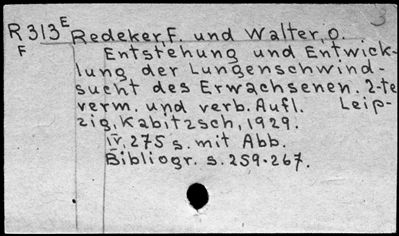 R313E Redeker, F. und Walter, O.
F Entstehung und Entwick-
lung der Lungenschwind-
sucht des Erwachsenen. 2-te
verm. und verb. Aufl. Leip-
zig, Kabitzsch, 1929.
IV, 275 s. mit Abb.
Bibliogr. s. 259-267.